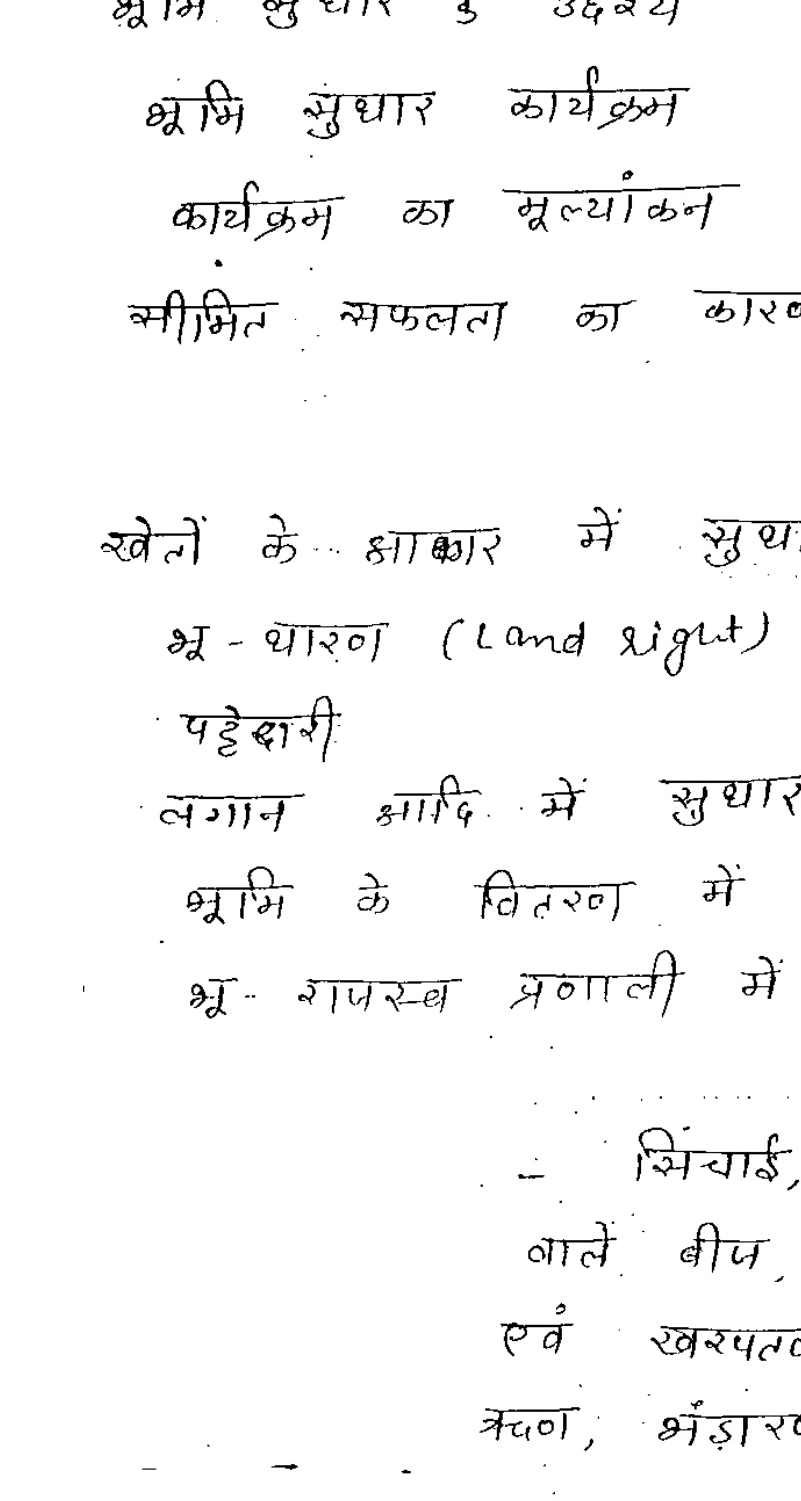 भूमि सुधार के उद्देश्य
भूमि सुधार कार्यक्रम
कार्यक्रम का मूल्यांकन
सीमित सफलता का
खेतों के आकार में
भू - धारण (Land right)
पट्टेदारी
लगान आदि में सुधार
भूमि के वितरण में
भू - राजस्व प्रणाली में
- सिंचाई,
वाले बीज,
एवं
ऋण,